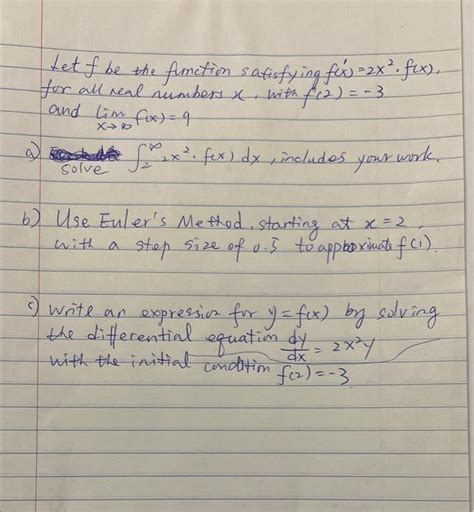 Let f be the function satisfying f'(x) = 2x². f(x),
for all real numbers x, with f(2) = -3
and lim x→∞ f(x) = 9
a) solve ∫₂^∞ 2x². f(x) dx, includes your work.
b) Use Euler's Method, starting at x = 2,
with a step size of 0.5 to approximate f(1).
c) Write an expression for y = f(x) by solving
the differential equation dy/dx = 2x²y
with the initial condition f(2) = -3